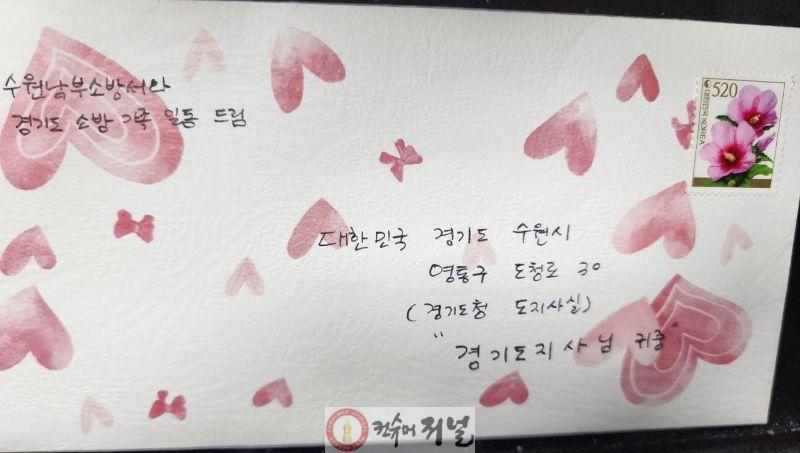 수원남부소방서와
경기도 소방 가족 일동 드림
520
대한민국 KOREA
대한민국 경기도 수원시
영통구 도청로 30
(경기도청 도지사실)
"경기도지사님 귀중"
컨슈머 저널